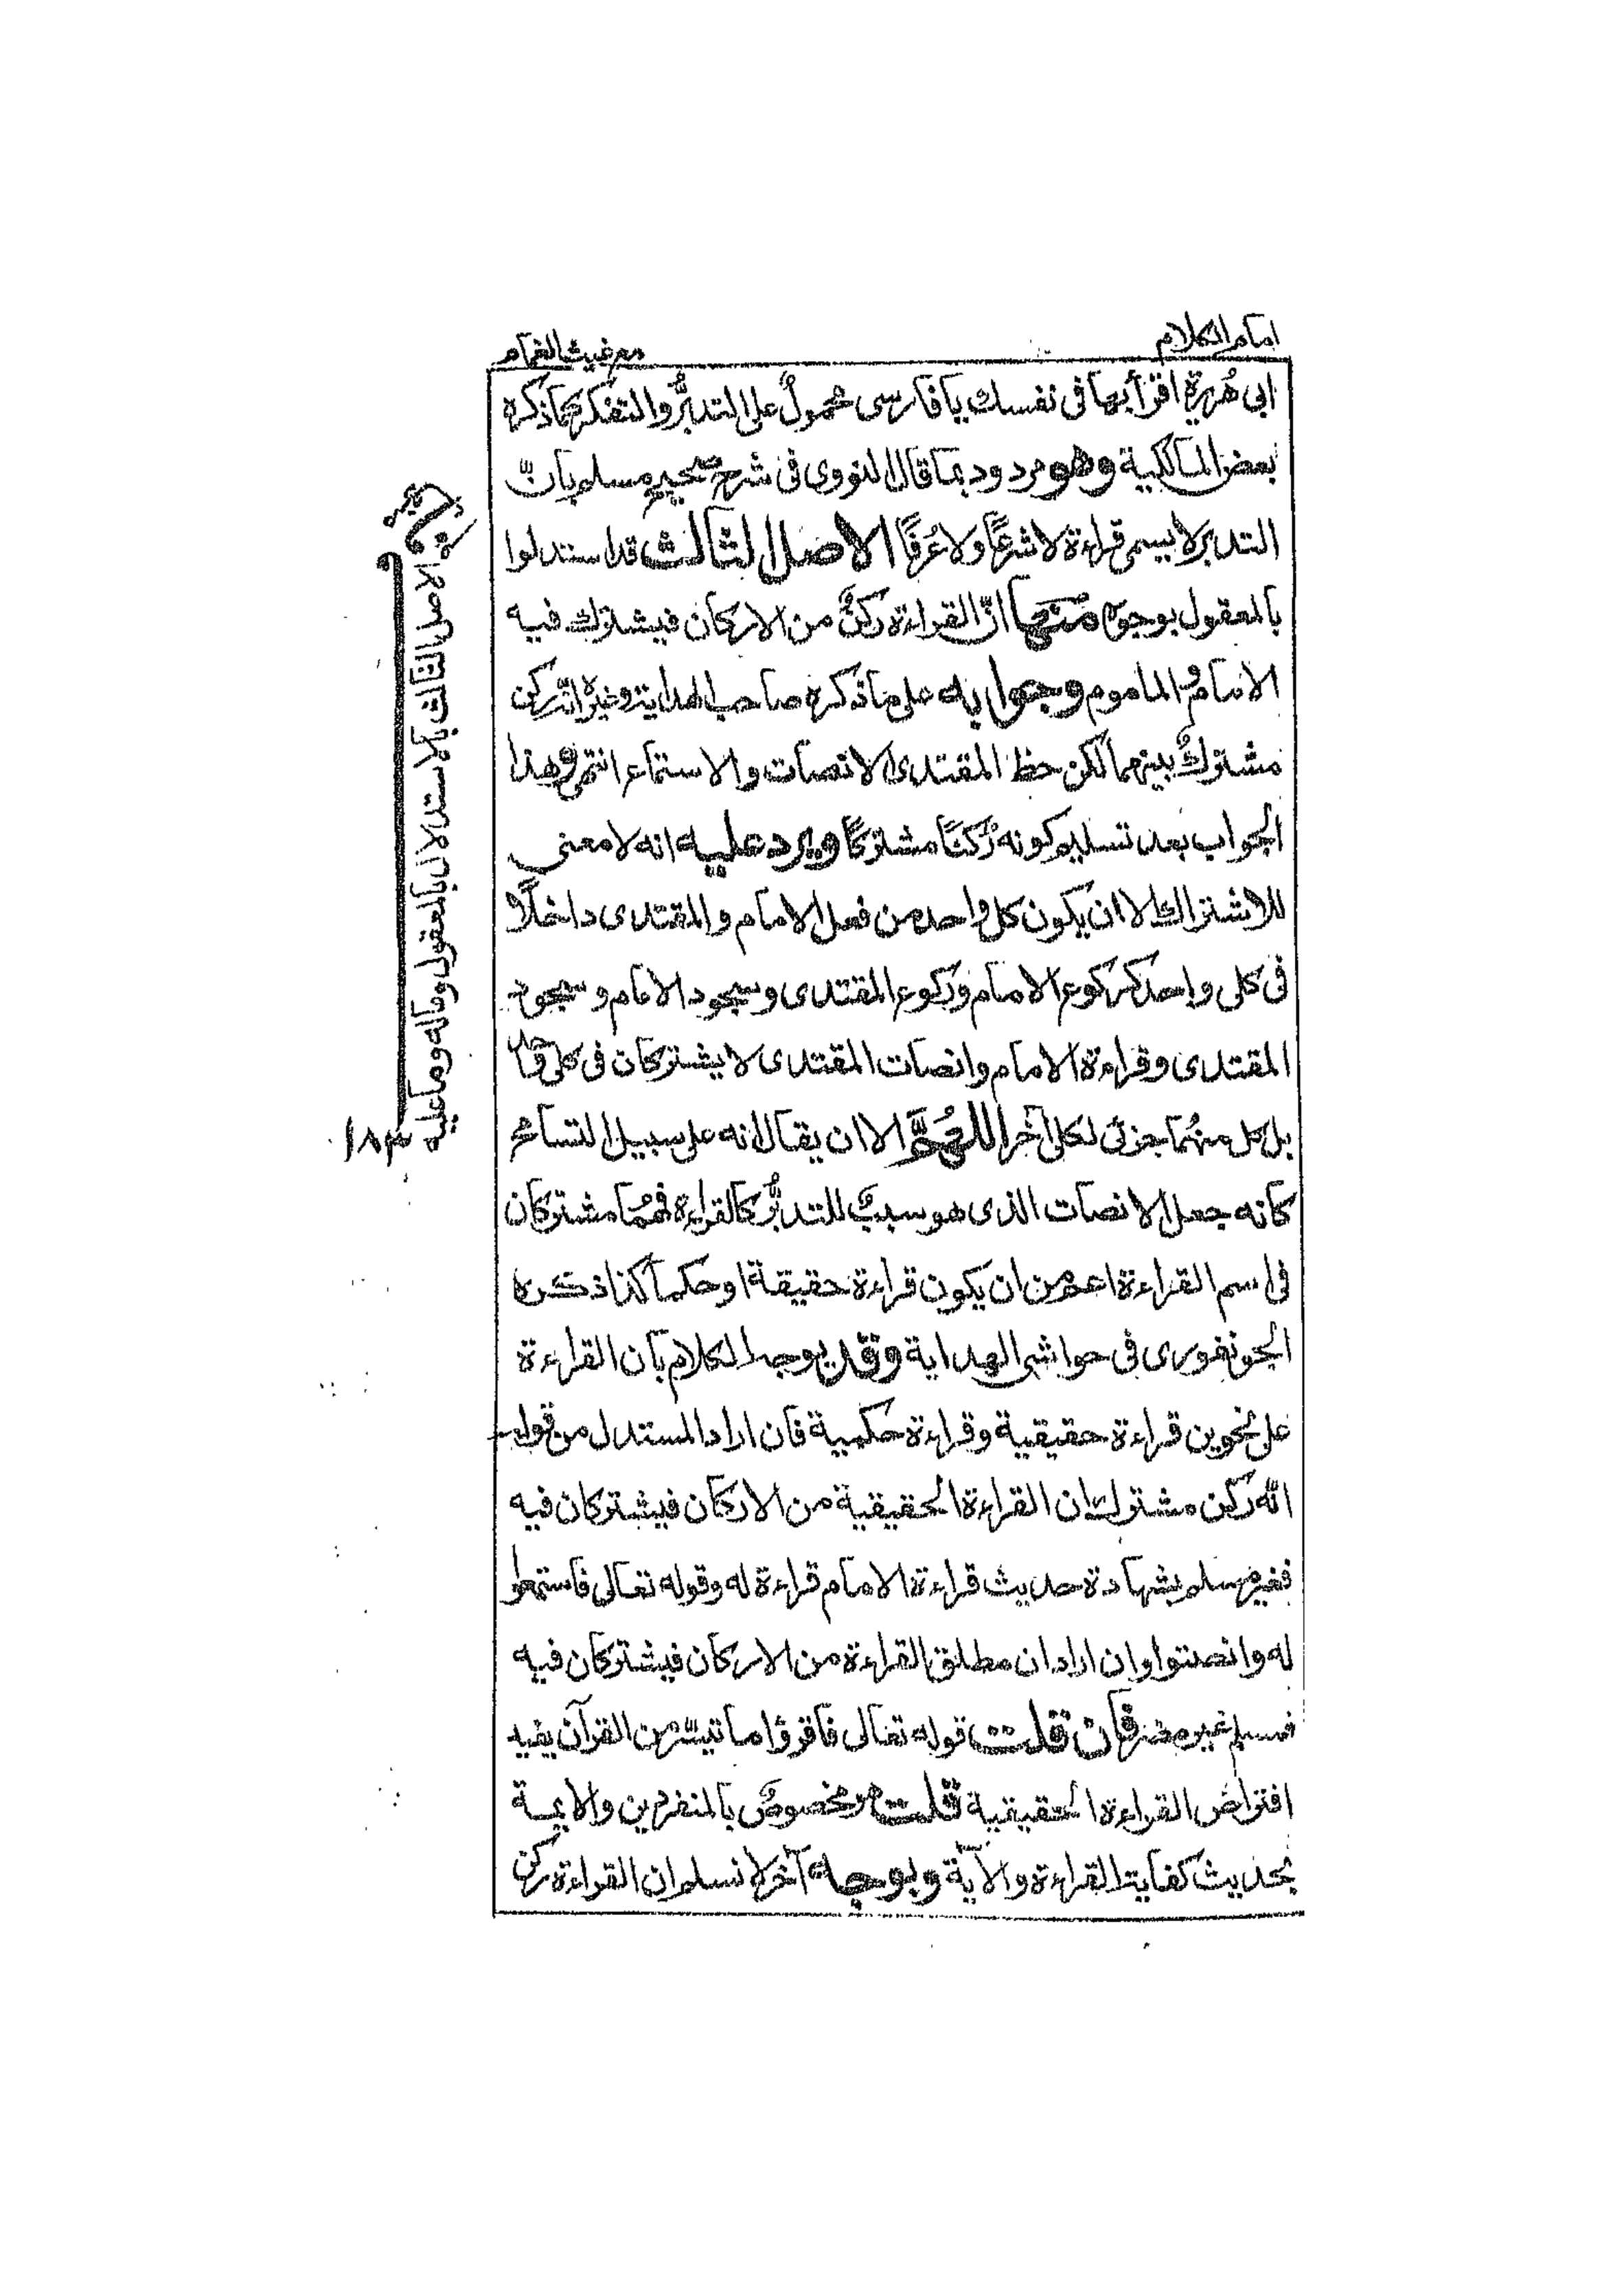 امام الكلام
مع غيث الغمام
ابى هُريرة اقرأ بها فى نفسك يا فارسى محمولٌ على التدبُّر والتفكر كما ذكره
بعض المالكية وهو مردود بما قال النووى فى شرح صحيح مسلم بانّ
التدبر لا يسمى قراءة لا شرعًا ولا عُرفًا الاصل الثالث قد استدلوا
بالمعقول بوجوه منها انّ القراءة ركنٌ من الاركان فيشترك فيه
الامام و الماموم وجوابه على ما ذكره صاحب الهداية وغيره انّه ركن
مشتركٌ بينهما لكن حظ المقتدى الانصات والاستماع انتهى وهذا
الجواب بعد تسليم كونه رُكنًا مشتركًا ويرد عليه انه لا معنى
للاشتراك الا ان يكون كل واحد من فعل الامام والمقتدى داخلًا
فى كلى واحد كركوع الامام وركوع المقتدى وسجود الامام وسجود
المقتدى وقراءة الامام وانصات المقتدى لا يشتركان فى كلى واحد
بل كل منهما جزئى لكلى آخر اللهُمَّ الا ان يقال انه على سبيل التسامح
كانه جعل الانصات الذى هو سببٌ للتدبُّر كالقراءة فهُما مشتركان
فى اسم القراءة اعم من ان يكون قراءة حقيقة او حكماً كذا ذكره
الجونفورى فى حواشى الهداية وقد يوجه الكلام بان القراءة
على نحوين قراءة حقيقية وقراءة حكمية فان اراد المستدل من قوله
انّه ركن مشترك ان القراءة الحقيقية من الاركان فيشتركان فيه
فغير مسلم بشهادة حديث قراءة الامام قراءة له وقوله تعالى فاستمعوا
له وانصتوا وان اراد ان مطلق القراءة من الاركان فيشتركان فيه
فمسلم غير مضر فان قلت قوله تعالى فاقرؤا ما تيسّر من القرآن يفيد
افتراض القراءة الحقيقية قلت هو مخصوصٌ بالمنفردين والايمة
بحديث كفاية القراءة والآية وبوجه آخر لا نسلم ان القراءة ركن
الاصل الثالث الاستدلال بالمعقول وماله وما عليه
١٨٣